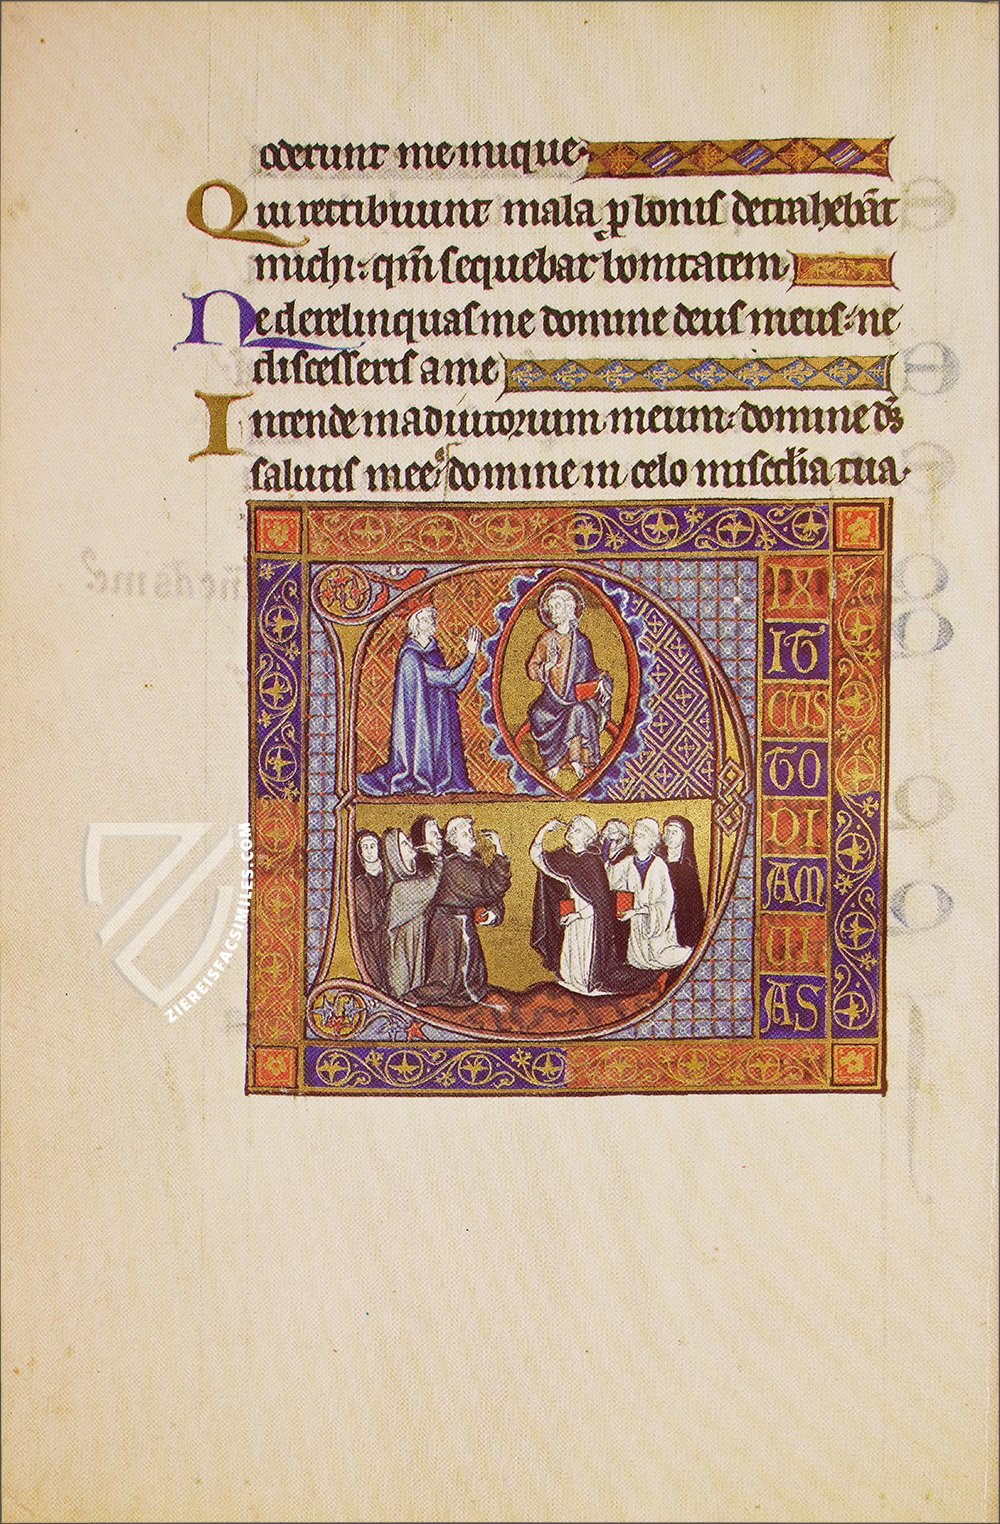 oderunt me inique.
Qui retribuunt mala p bonis detrahebāt
michi: qm̄ sequebar bonitatem
Ne derelinquas me domine deus meus: ne
discesseris a me
Intende in adiutorium meum: domine ds̄
salutis mee domine in celo misčdia tua.
IXI
IT
CUS
TO
DI
AM
UI
AS
ZIEREISFACSIMILES.COM